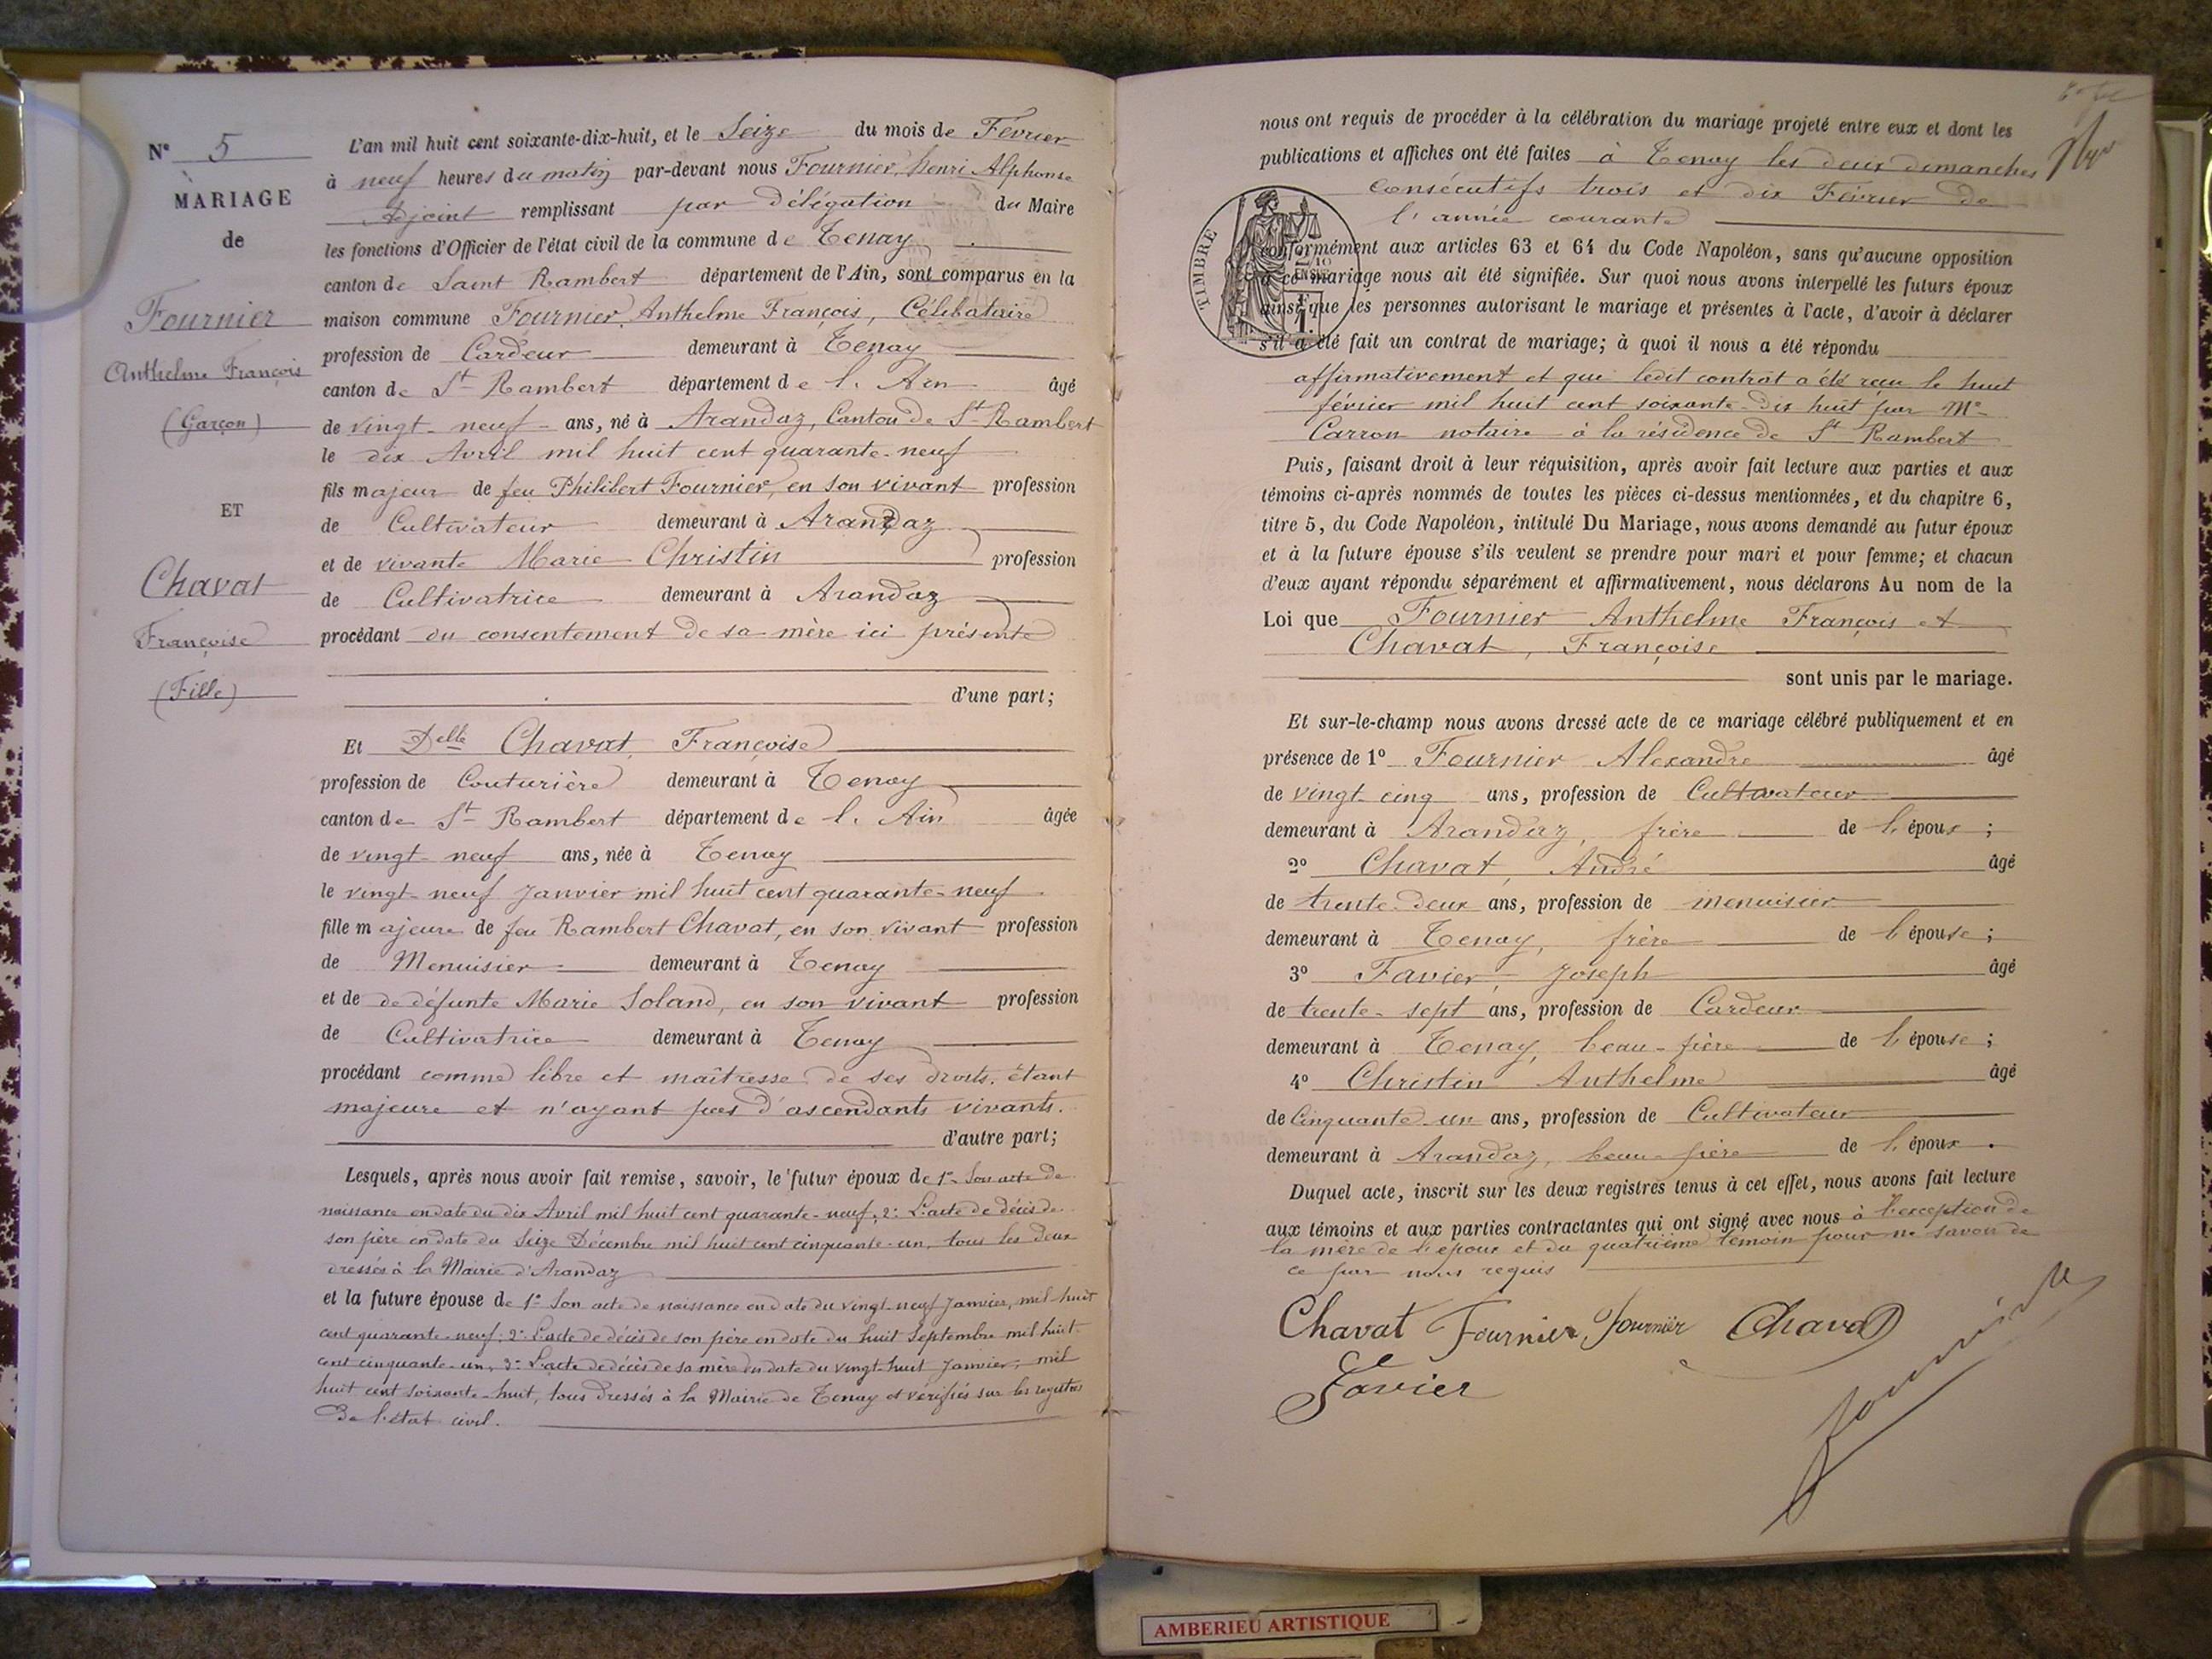 N° 5
MARIAGE
de
Fournier
Anthelme François
(Garçon)
ET
Chavat
Françoise
(Fille)
L'an mil huit cent soixante-dix-huit, et le Seize du mois de Février
à neuf heures du matin par-devant nous Fournier, henri Alphonse
Adjoint remplissant par délégation du Maire
les fonctions d'Officier de l'état civil de la commune de Tenay
canton de Saint Rambert département de l'Ain, sont comparus en la
maison commune Fournier, Anthelme François, Célibataire
profession de Cardeur demeurant à Tenay
canton de St Rambert département de l'Ain âgé
de vingt-neuf ans, né à Arandaz, Canton de St Rambert
le dix Avril mil huit cent quarante-neuf
fils majeur de feu Philibert Fournier, en son vivant profession
de Cultivateur demeurant à Arandaz
et de vivante Marie Christin profession
de Cultivatrice demeurant à Arandaz
procédant du consentement de sa mère ici présente
d'une part;
Et Delle Chavat, Françoise
profession de Couturière demeurant à Tenay
canton de St Rambert département de l'Ain âgée
de vingt-neuf ans, née à Tenay
le vingt-neuf Janvier mil huit cent quarante-neuf
fille majeure de feu Rambert Chavat, en son vivant profession
de Menuisier demeurant à Tenay
et de de défunte Marie Soland, en son vivant profession
de Cultivatrice demeurant à Tenay
procédant comme libre et maîtresse de ses droits, étant
majeure et n'ayant pas d'ascendants vivants.
d'autre part;
Lesquels, après nous avoir fait remise, savoir, le futur époux de 1° Son acte de
naissance en date du dix Avril mil huit cent quarante-neuf; 2° L'acte de décès de
son père en date du Seize Décembre mil huit cent cinquante-un, tous les deux
dressés à la Mairie d'Arandaz
et la future épouse de 1° Son acte de naissance en date du vingt-neuf Janvier, mil huit
cent quarante-neuf; 2° L'acte de décès de son père en date du huit Septembre mil huit
cent cinquante-un, 3° L'acte de décès de sa mère en date du vingt-huit Janvier, mil
huit cent soixante-huit, tous dressés à la Mairie de Tenay et vérifiés sur les registres
de l'état civil.
nous ont requis de procéder à la célébration du mariage projeté entre eux et dont les
publications et affiches ont été faites à Tenay les deux dimanches
consécutifs trois et dix Février de
l'année courante
TIMBRE
conformément aux articles 63 et 64 du Code Napoléon, sans qu'aucune opposition
à ce mariage nous ait été signifiée. Sur quoi nous avons interpellé les futurs époux
ainsi que les personnes autorisant le mariage et présentes à l'acte, d'avoir à déclarer
s'il a été fait un contrat de mariage; à quoi il nous a été répondu
affirmativement et que ledit contrat a été reçu le huit
février mil huit cent soixante-dix huit par Me
Carron notaire à la résidence de St Rambert
Puis, faisant droit à leur réquisition, après avoir fait lecture aux parties et aux
témoins ci-après nommés de toutes les pièces ci-dessus mentionnées, et du chapitre 6,
titre 5, du Code Napoléon, intitulé Du Mariage, nous avons demandé au futur époux
et à la future épouse s'ils veulent se prendre pour mari et pour femme; et chacun
d'eux ayant répondu séparément et affirmativement, nous déclarons Au nom de la
Loi que Fournier Anthelme François et
Chavat, Françoise
sont unis par le mariage.
Et sur-le-champ nous avons dressé acte de ce mariage célébré publiquement et en
présence de 1° Fournier Alexandre âgé
de vingt-cinq ans, profession de Cultivateur
demeurant à Arandaz, frère de l'époux;
2° Chavat, André âgé
de trente-deux ans, profession de menuisier
demeurant à Tenay, frère de l'épouse;
3° Favier, Joseph âgé
de trente-sept ans, profession de Cardeur
demeurant à Tenay, beau-frère de l'épouse;
4° Christin Anthelme âgé
de Cinquante-un ans, profession de Cultivateur
demeurant à Arandaz, beau-père de l'époux.
Duquel acte, inscrit sur les deux registres tenus à cet effet, nous avons fait lecture
aux témoins et aux parties contractantes qui ont signé avec nous à l'exception de
la mère de l'époux et du quatrième témoin pour ne savoir de
ce par nous requis
Chavat Fournier Fournier Chavat
Favier
Fournier
AMBERIEU ARTISTIQUE